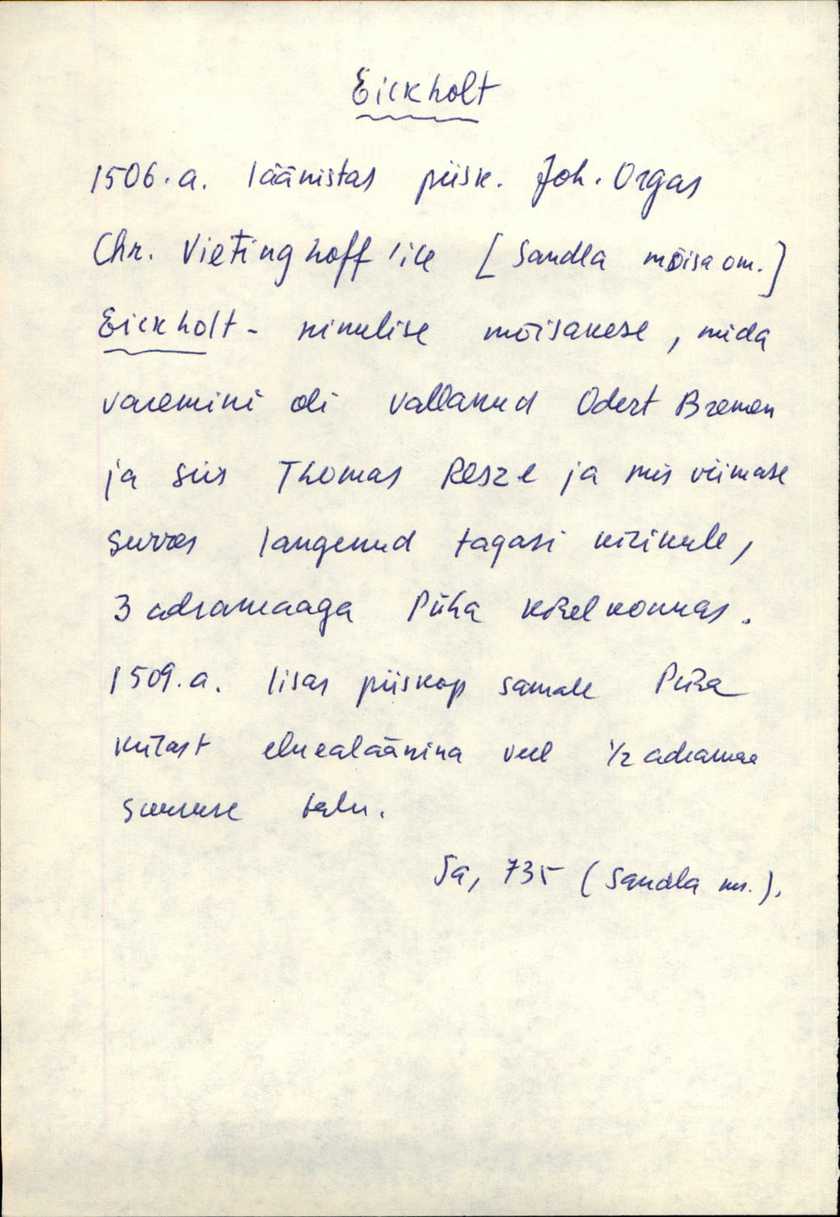 Eickholt
1506.a. läänistas piisk. Joh. Orgas
Chr. Vietinghoff'ile [Sandla mõisa om.]
Eickholt- nimelise mõisakese, mida
varemini oli vallanud Odert Bremen
ja siis Thomas Resze ja mis viimase
surres langenud tagasi kirikule,
3 adramaaga Püha kihelkonnas.
1509.a. lisas piiskop samale Püha
külast eluealäänina veel 1/2 adramaa
suuruse talu.
Sa, 735 (Sandla ms.).